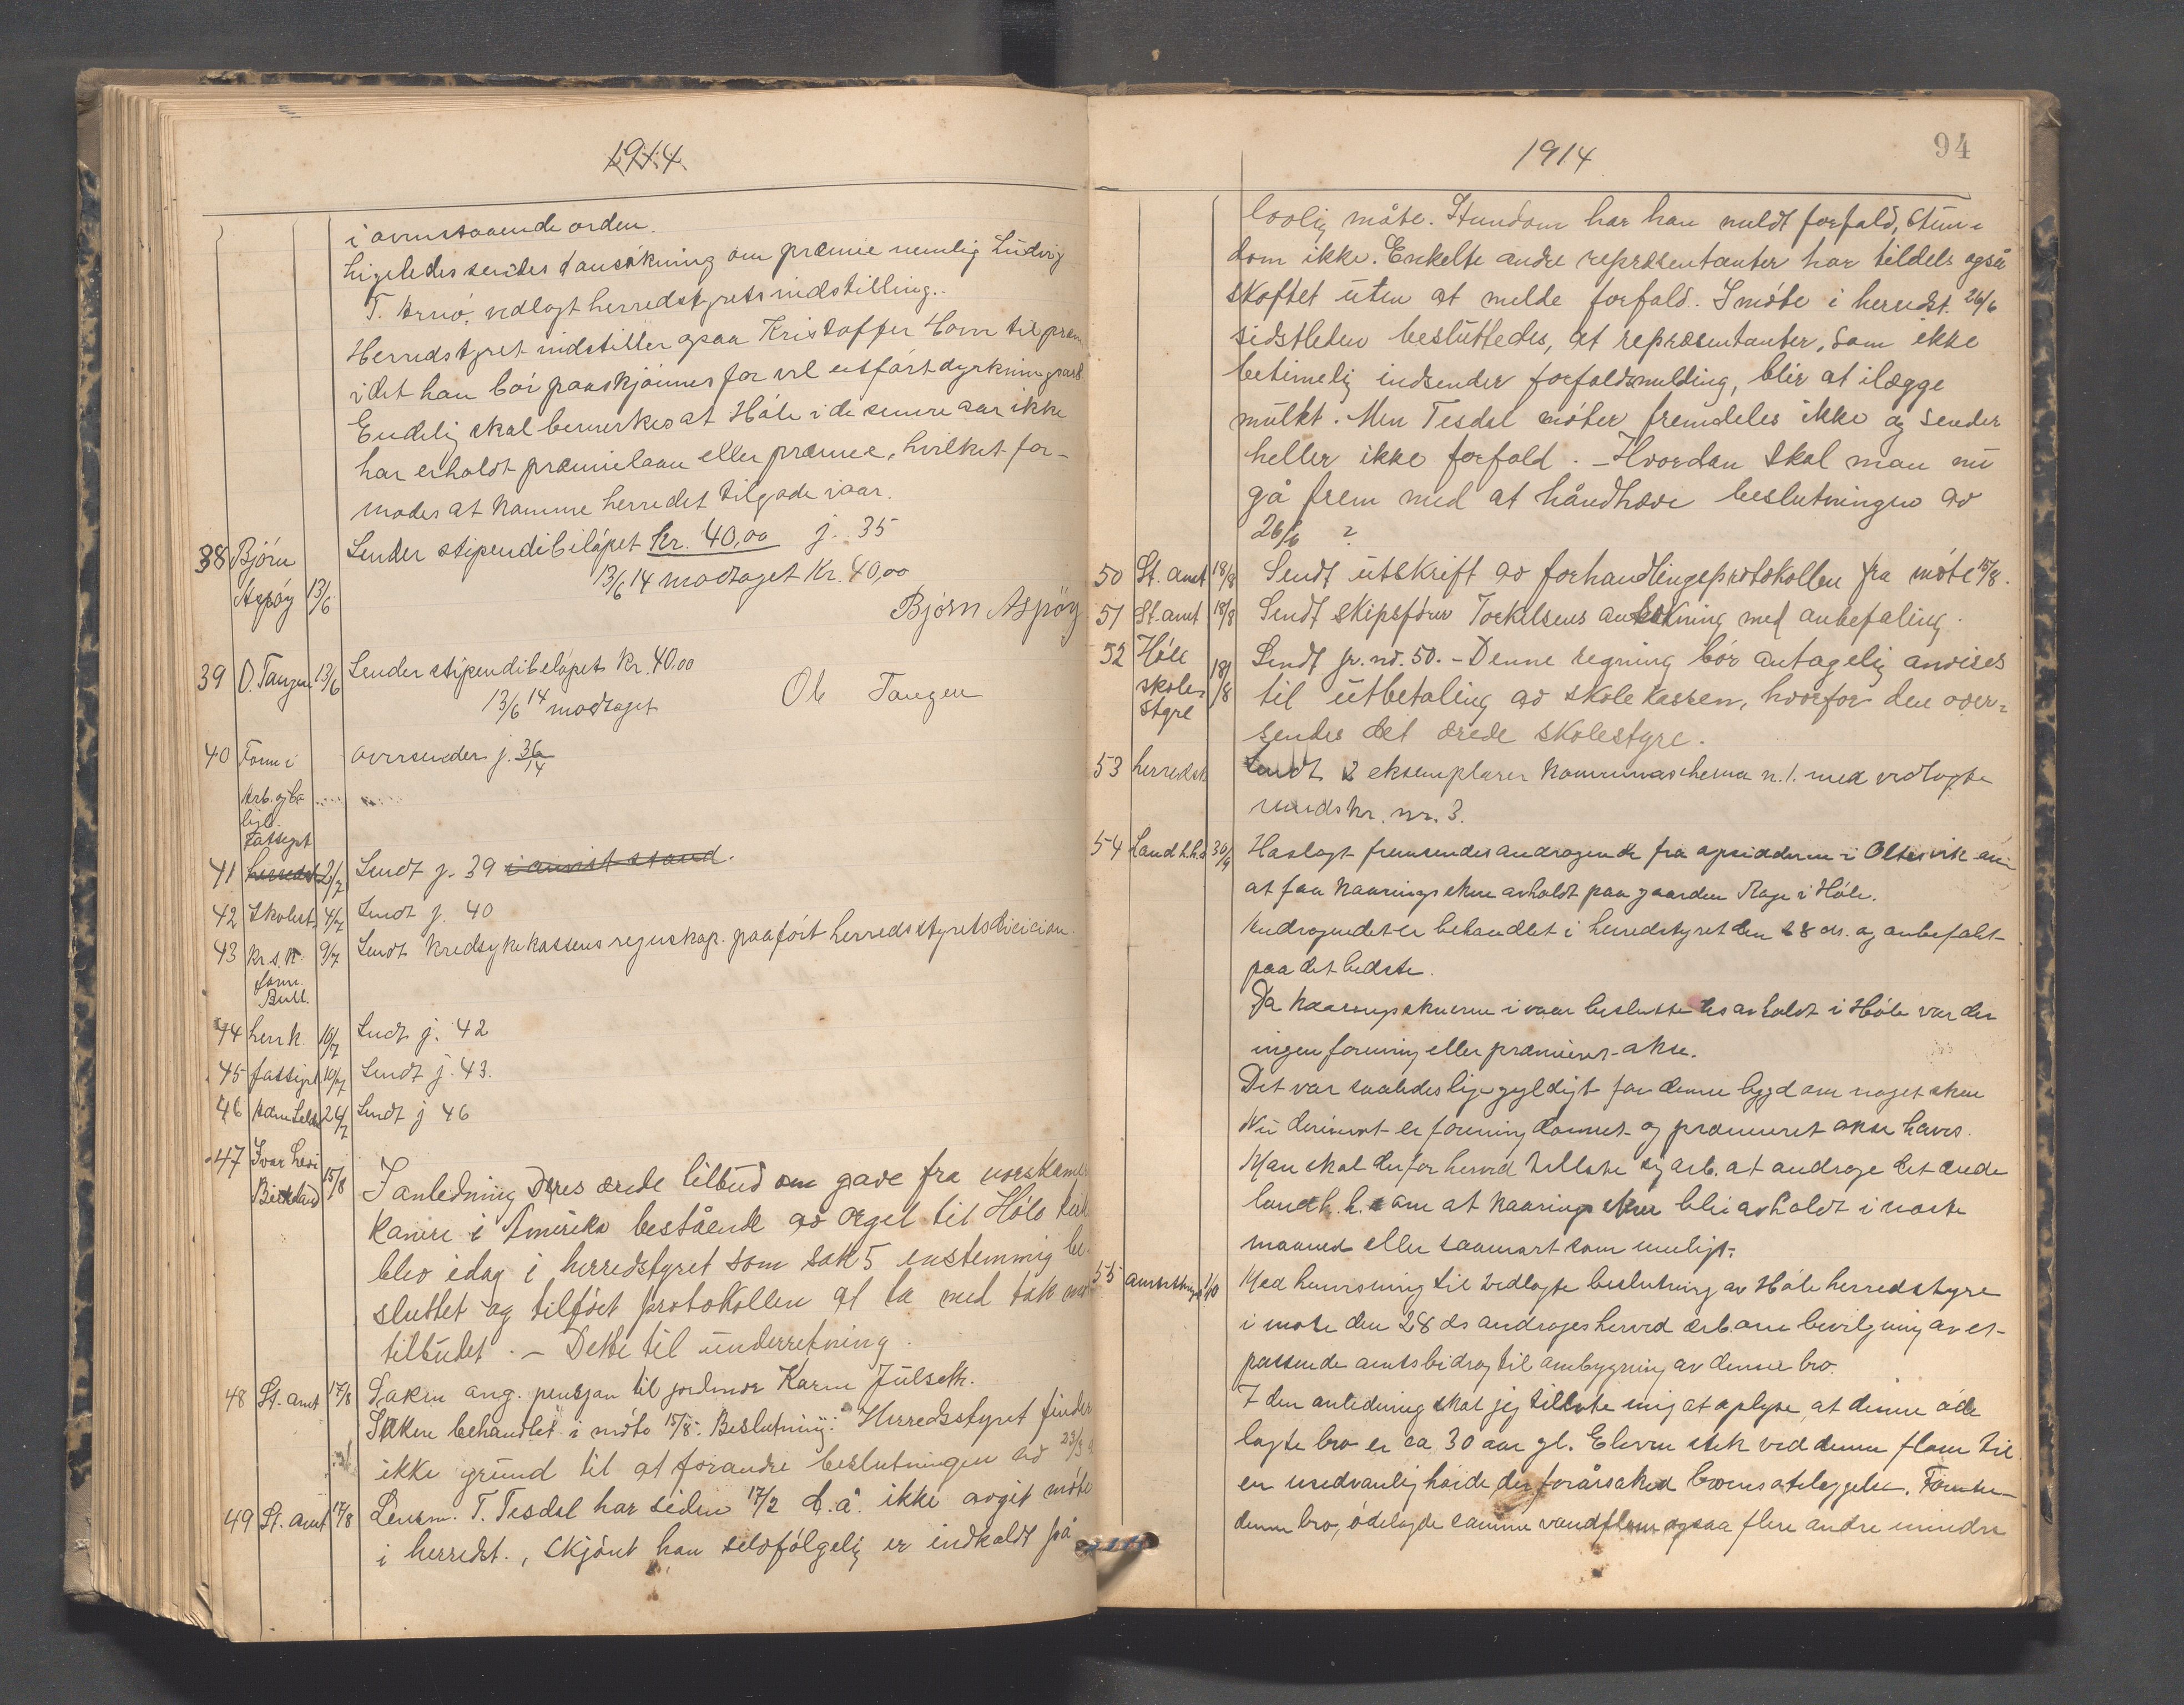 1914
i ovenstaaende orden.
Ligeledes sendes 1 ansøkning om præmie nemlig Ludvig
T. Arnø, vedlagt herredstyrets indstilling.
Herredstyret indstiller ogsaa Kristoffer Hom til præm
idet han bør paaskjønnes for vel utført dyrkningsarb.
Endelig skal bemerkes at Høle i de senere aar ikke
har erholdt præmielaan eller præmie, hvilket for-
modes at komme herredet tilgode iaar.
38 Bjørn Sender stipendibeløpet kr. 40,00 j. 35
Aspøy 13/6 13/6 14 modtaget Kr. 40,00
Bjørn Aspöy
39 O. Tangen 13/6 Sender stipendibeløpet kr. 40.00
13/6 14 modtaget Ole Tangen
40 Form i oversender j. 36/14
Arb. og bo
lign.
Fattigst
41 herredst 2/7 Sendt j. 39 i anvist stand.
42 Skolest. 4/7 Sendt j. 40
43 Kr.s.k. 9/7 Sendt kredsykekassens regnskap. paaført herredsstyrets decicion
form.
Bull.
44 herr k. 10/7 Sendt j. 42
45 fattigst 10/7 Sendt j. 43.
46 24/7 Sendt j 46
47 Ivar Levi
Birkeland 15/8 I anledning Deres ærede tilbud om gave fra norskamer
kanere i Amerika bestående av orgel til Høle kirke
blev idag i herredstyret som sak 5 enstemmig be-
sluttet og tilført protokollen at ta med tak mot
tilbudet. – Dette til underretning.
48 St. amt 17/8 Saken ang. pensjon til jordmor Karen Julseth.
Saken behandlet i møte 15/8. Beslutning: "Herredsstyret finder
ikke grund til at forandre beslutningen av 23/3
49 St. amt 17/8 Lensm. T. Tesdal har siden 17/2 d.å. ikke avgit møte
i herredst., skjønt han selvfølgelig er indkaldt på
1914
94
lovlig måte. Stundom har han meldt forfald, stun-
dom ikke. Enkelte andre repræsentanter har tildels også
skoftet uten at melde forfald. I møte i herredst. 26/6
sidstleden besluttedes, at repræsentanter, som ikke
betimelig indsender forfaldsmelding, blir at ilægge
mulkt. Men Tesdal møter fremdeles ikke og sender
heller ikke forfald. – Hvordan skal man nu
gå frem med at håndhæve beslutningen av
26/6 ?
50 St. amt 18/8 Sendt utskrift av forhandlingsprotokollen fra møte 15/8.
51 St. amt 18/8 Sendt skipsfører Torkelsens ansøkning med anbefaling.
52 Høle Sendt jr. no. 50. – Denne regning bør antagelig anvises
skole- 18/8 til utbetaling av skolekassen, hvorfor den over-
styre sendes det ærede skolestyre.
53 herredsk Sendt 2 eksemplarer kommuneschema n. 1. med vedlagte
rundskr. nr. 3.
54 Landh.h.s 30/9 Haslagt fremsendes andragende fra opsidderne i Oltesvik om
at faa kaaringsskue avholdt paa gaarden Rage i Høle.
Andragendet er behandlet i herredstyret den 28 ds. og anbefalt
paa det bedste.
Da kaaringsskuerne ivaar besluttedes avholdt i Høle var der
ingen forening eller præmiert okse.
Det var saaledes ligegyldigt for denne bygd om noget skue
Nu derimot er forening dannet og præmieret okse haves.
Man skal derfor herved tillate sig ærb. at andrage det ærede
landh.h.s om at kaaringsskue blir avholdt i næste
maaned eller saasnart som muligt.
55 amtstinget 1/10 Med henvisning til vedlagte beslutning av Høle herredstyre
i møte den 28 ds andrages herved ærb. om bevilgning av et
passende amtsbidrag til ombygning av denne bro.
I den anledning skal jeg tillate mig at oplyse, at denne øde
lagte bro er ca 30 aar gl. Elven stek ved denne flom til
en usedvanlig høide der forårsaket broens ødelæggelse. Foruten
denne bro, ødelagde samme vandflom ogsaa flere andre mindre